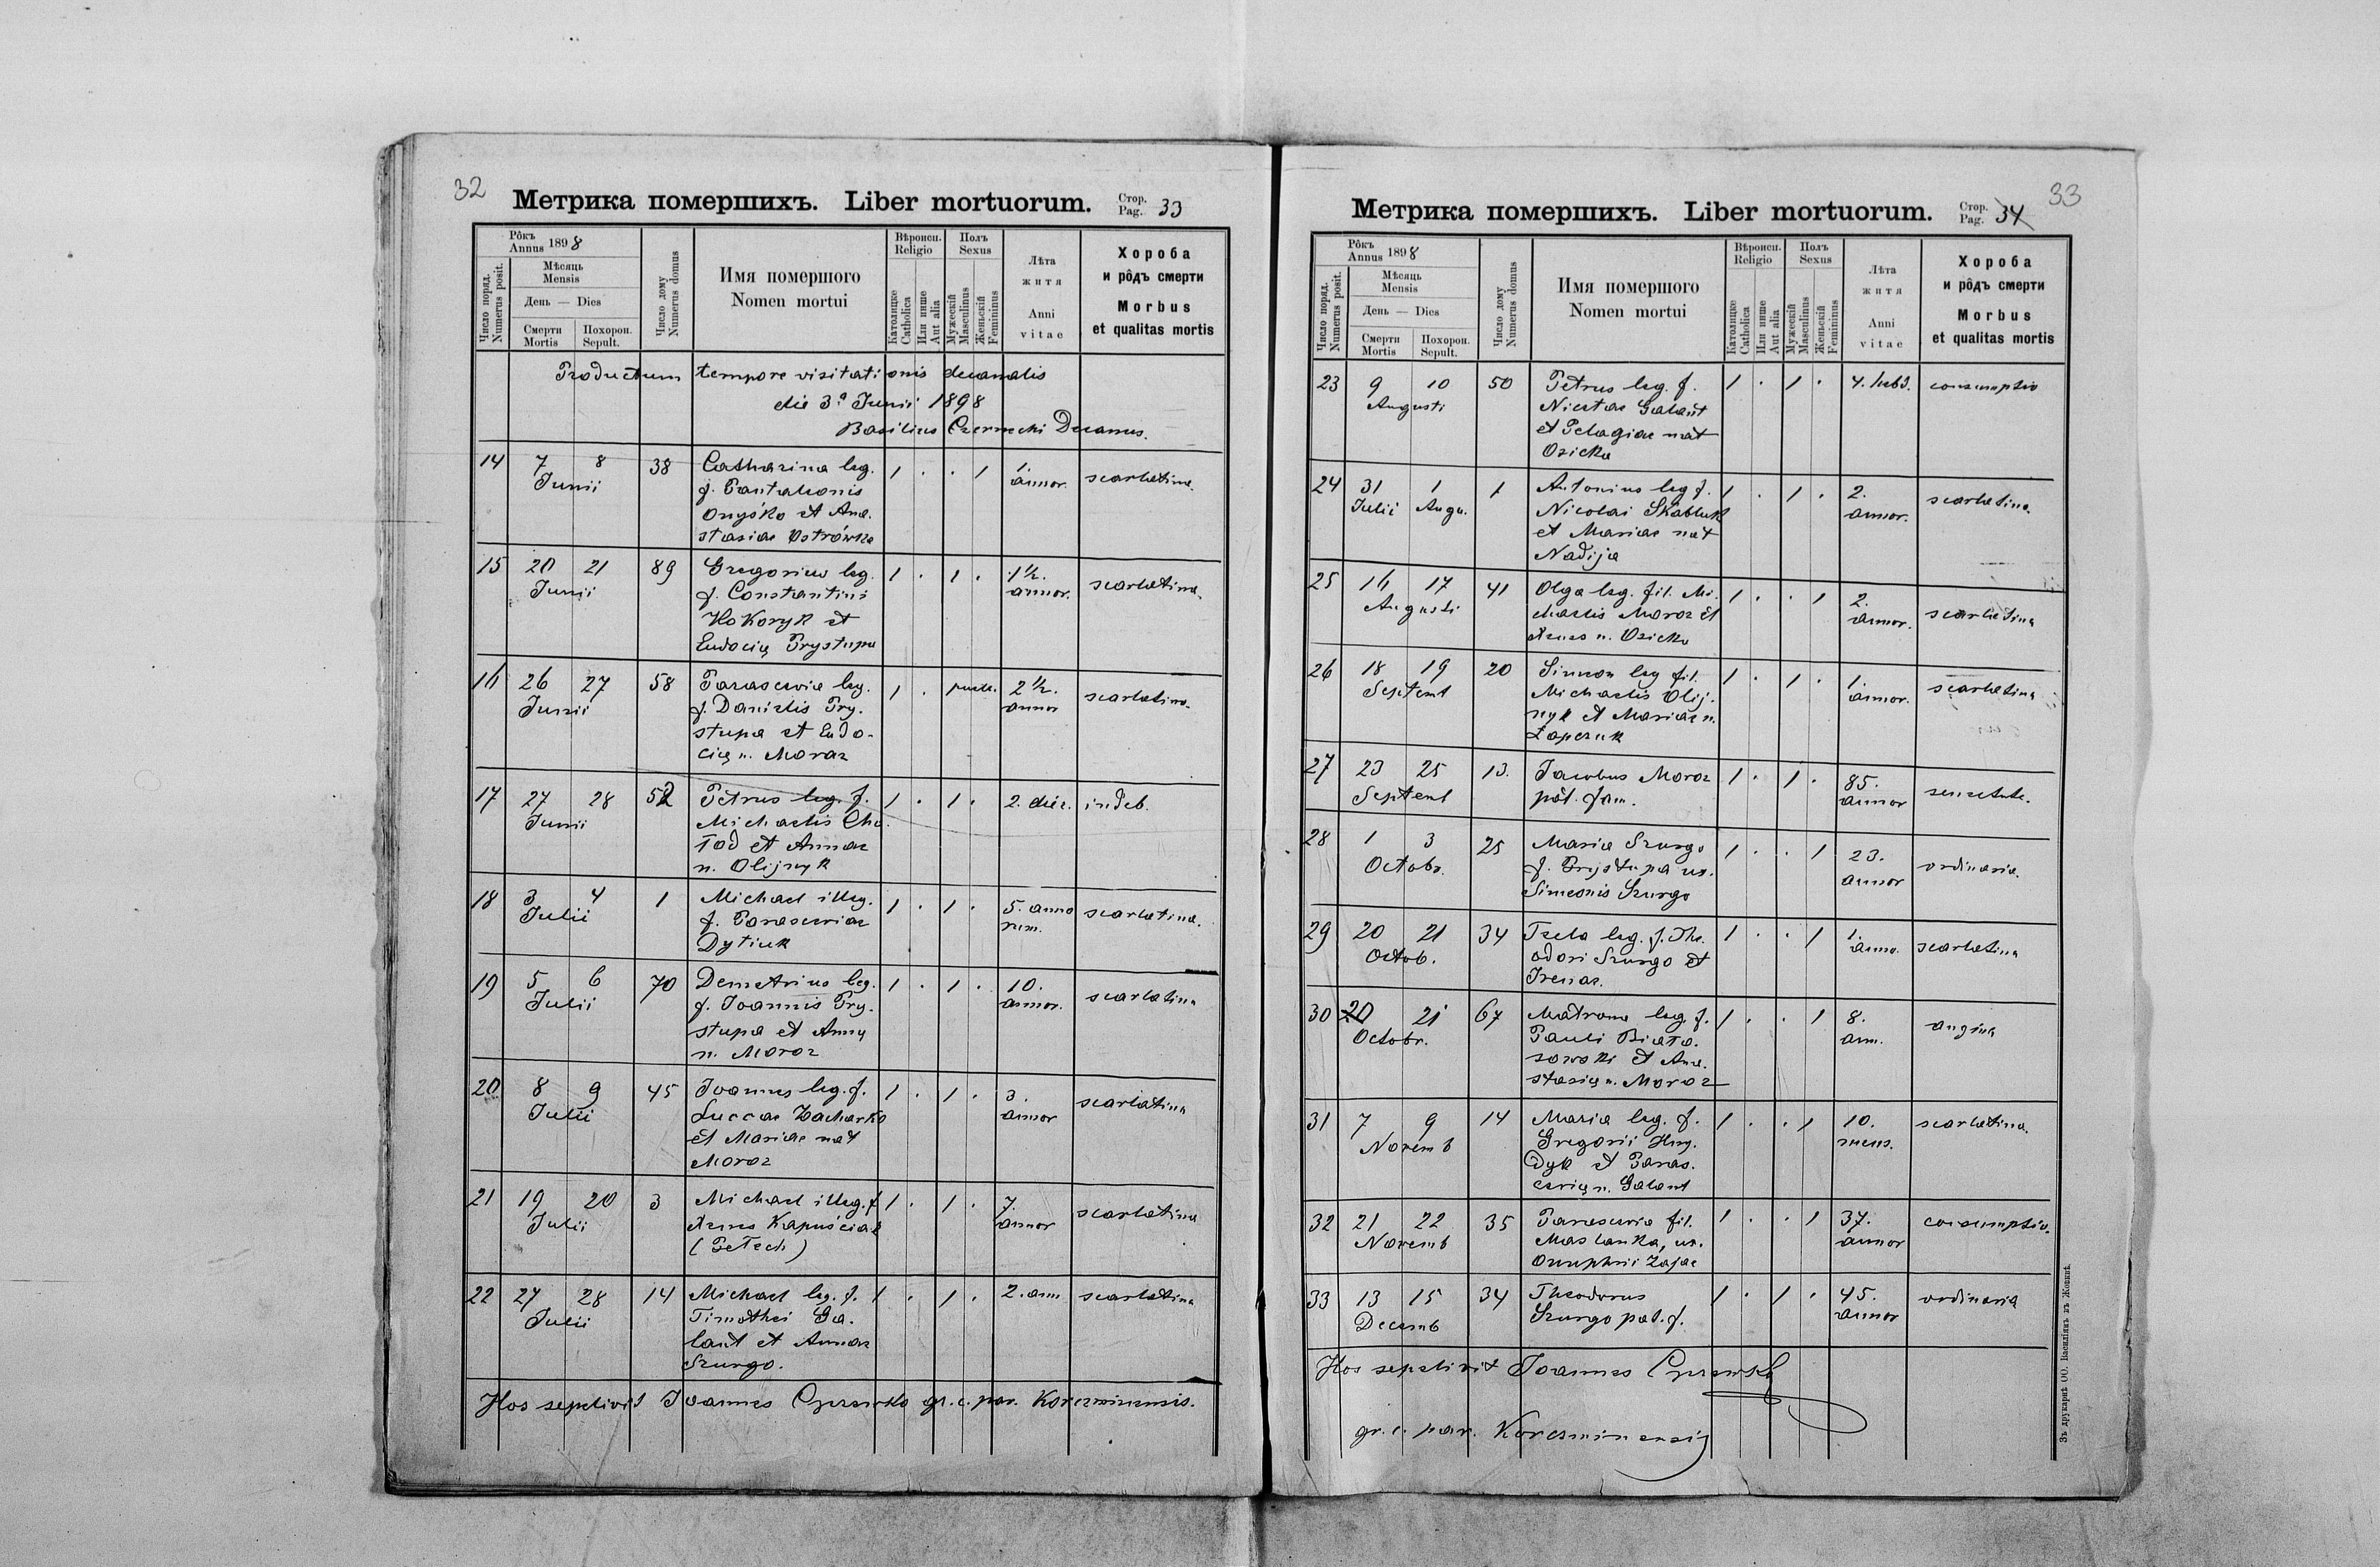 32
Метрика помершихъ. Liber mortuorum. Стор. Pag. 33
Рôкъ Annus 1898
Мѣсяць Mensis
День — Dies
Смерти Mortis
Похорон. Sepult.
Число поряд. Numerus posit.
Число дому Numerus domus
Имя помершого
Nomen mortui
Вѣроисп. Religio
Католицке Catholica
Или инше Aut alia
Полъ Sexus
Мужескій Masculinus
Женьскій Femininus
Лѣта житя
Anni vitae
Хороба
и рôдъ смерти
Morbus
et qualitas mortis
Productum tempore visitationis decanalis
die 3ª Junii 1898
Basilius Czernecki Decanus.
14 7 8 38 Catharina leg. 1 . . 1 1. scarlatina.
Junii f. Pantaleonis annor.
Onyśko et Ana-
stasiae Ostrówka
15 20 21 89 Gregorius leg. 1 . 1 . 1½. scarlatina.
Junii f. Constantini annor.
Hokoryk et
Eudocię Prystupa
16 26 27 58 Parascevia leg. 1 . 2½. scarlatina.
Junii f. Danielis Pry- annor
stupa et Eudo-
cię n. Moroz
17 27 28 52 Petrus leg. f. 1 . 1 . 2. dier. indeb.
Junii Michaelis Cho-
łod et Annae
n. Olijnyk
18 3 4 1 Michael illeg. 1 . 1 . 5. anno scarlatina.
Julii f. Parasceviae rum.
Dytiuk
19 5 6 70 Demetrius leg. 1 . 1 . 10. scarlatina
Julii f. Joannis Pry- annor.
stupa et Annę
n. Moroz
20 8 9 45 Joannes leg. f. 1 . 1 . 3. scarlatina
Julii Luccae Zacharko annor
et Mariae nat
Moroz
21 19 20 3 Michael illeg. f 1 . 1 . 7. scarlatina
Julii Kapuściak annor
22 27 28 14 Michael leg. f. 1 . 1 . 2. ann. scarlatina
Julii Timothei Ga-
lant et Annae
Szurgo.
Hos sepelivit Joannes gr. c. par. Korczminensis.
33
Метрика помершихъ. Liber mortuorum. Стор. Pag. 34
Рôкъ Annus 1898
Мѣсяць Mensis
День — Dies
Смерти Mortis
Похорон. Sepult.
Число поряд. Numerus posit.
Число дому Numerus domus
Имя помершого
Nomen mortui
Вѣроисп. Religio
Католицке Catholica
Или инше Aut alia
Полъ Sexus
Мужескій Masculinus
Женьскій Femininus
Лѣта житя
Anni vitae
Хороба
и рôдъ смерти
Morbus
et qualitas mortis
23 9 10 50 Petrus leg. f. 1 . 1 . 4. hebd. consumptio
Augusti Nicetae Galant
et Pelagiae nat
Osicka
24 31 1 1 Antonius leg f. 1 . 1 . 2. scarlatina.
Julii Augu. Nicolai Skabluk annor.
et Mariae nat
Nadija
25 16 17 41 Olga leg. fil. Mi- 1 . . 1 2. scarlatina
Augusti chaelis Moroz et annor.
n. Osicka
26 18 19 20 Simeon leg fil. 1 . 1 . 1. scarlatina
Septemb Michaelis Olij- annor.
nyk et Mariae n.
Łapczuk
27 23 25 13. Jacobus Moroz 1 . 1 . 85. senectute.
Septemb pat. fam. annor
28 1 3 25 Maria Szurgo 1 . . 1 23. ordinaria.
Octobr. f. Prystupa ux. annor
Simeonis Szurgo
29 20 21 34 Tecla leg. f. The- 1 . . 1 1. scarlatina
Octob. odori Szurgo et anno.
Irenae.
30 20 21 67 Matrona leg. f. 1 . . 1 8. angina
Octobr. Pauli Biało- ann.
sowski et Ana-
stasię n. Moroz
31 7 9 14 Maria leg. f. 1 . . 1 10. scarlatina.
Novemb Gregorii Hny- mens.
dyk et Paras-
cevię n. Galant
32 21 22 35 Parascevia fil. 1 . . 1 37. consumptio.
Novemb Maslanka, ux. annor
Onuphrii Zając
33 13 15 34 Theodorus 1 . 1 . 45. ordinaria
Decemb Szurgo pat. f. annor
Hos sepelivit Joannes
gr. c. par. Korczminensis
Зъ друкарнѣ ОО. Василіянъ въ Жовквѣ.